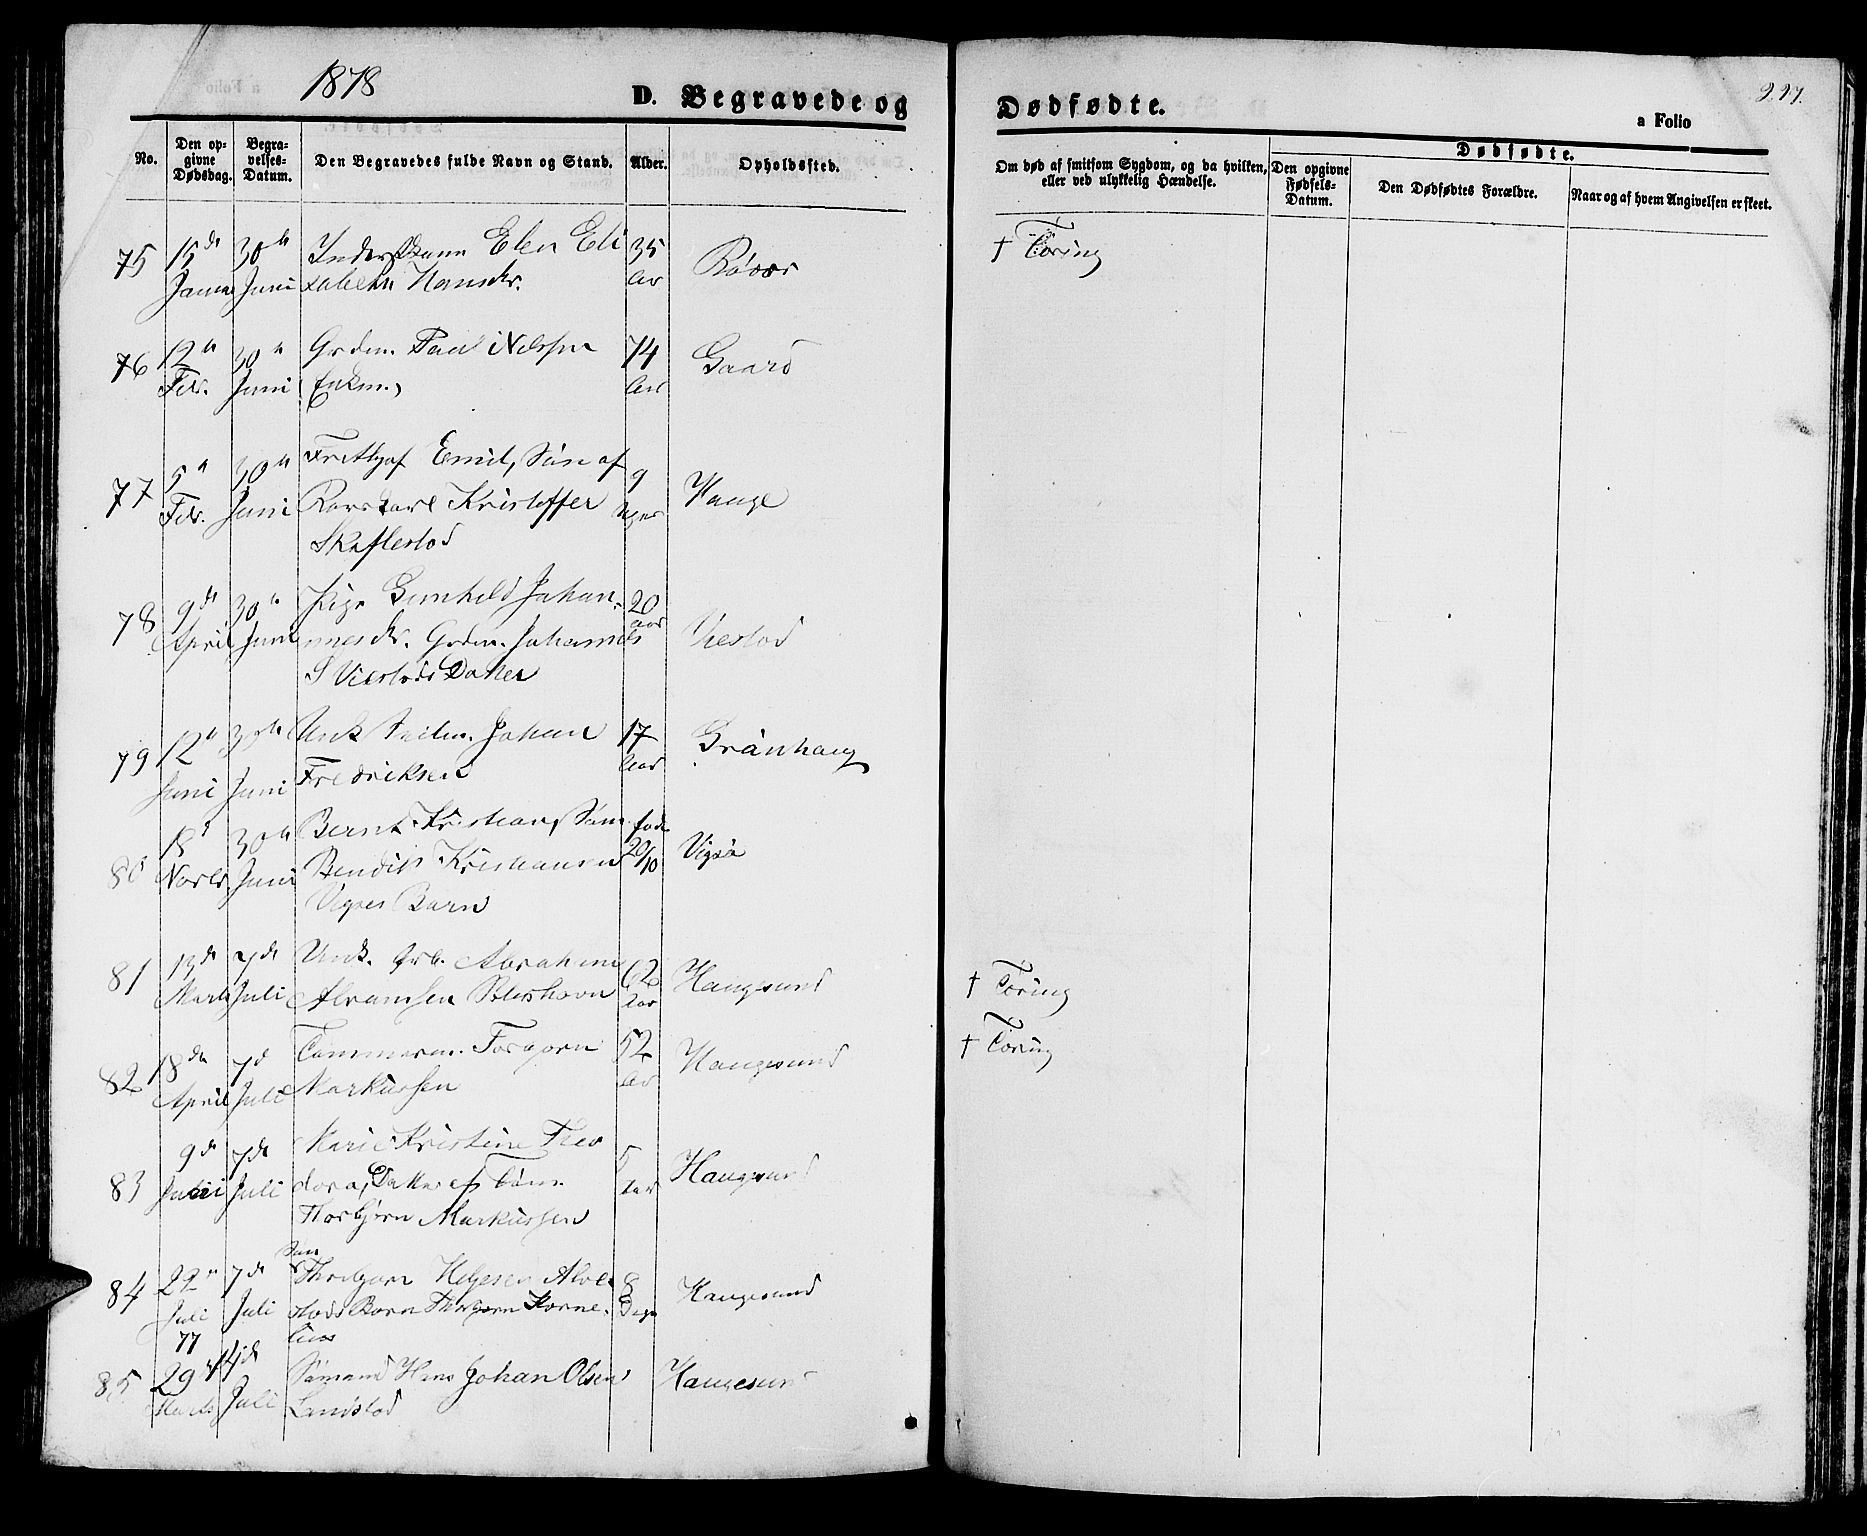 1878
D. Begravede og
Dødfødte.
227.
a Folio
No.
Den opgivne Dødsdag.
Begravelses-Datum.
Den Begravedes fulde Navn og Stand.
Alder.
Opholdssted.
Om død af smitsom Sygdom, og da hvilken,
eller ved ulykkelig Hændelse.
Dødfødte.
Den opgivne Fødsels-Datum.
Den Dødfødtes Forældre.
Naar og af hvem Angivelsen er skeet.
75 15de 30te Elen Eli 35 Røvær † Tæring
Juni sabeth Hansdr. Aar
76 12te 30te Grdm. Paul Nilssen 74 Gaard
Febr. Juni Enkm.,
77 5te 30te Frithjof Emil, Søn af 9 Hauge
Febr. Juni Kristoffer Uger
Skeflestod
78 9de 30te Pige Gunhild Johan- 20 Viestod
April Juni nesdr. Grdm. Johannes Aar
S Viestods Datter
79 12te 30te Unk. Johan 17 Grànhaug
Juni Juni Fredriksen Aar
80 18de 30te Bernt Kristian, Søn fød Vigsø
Novbr. Juni Bendik Kristiansen 20/10
Barn
81 13de 7de Unk. Arb. Abraham 62 Haugesund † Tæring
Marts Juli Aar
82 18de 7de Tømmerm. Torbjørn 52 Haugesund † Tæring
April Juli Markussen Aar
83 9de 7de Marie Kristine Theo 5 Haugesund
Juli dora, Datter af Tømm. Aar
Thorbjørn Markussen
Søn
84 22de 7de Thorbjørn Helgesen 8 Haugesund
Juli Juli Barn Thorbjørn Korne- Dage
77 lius
85 29de 14de Sømand Hans Johan Olsen Haugesund
Marts Juli Landstod